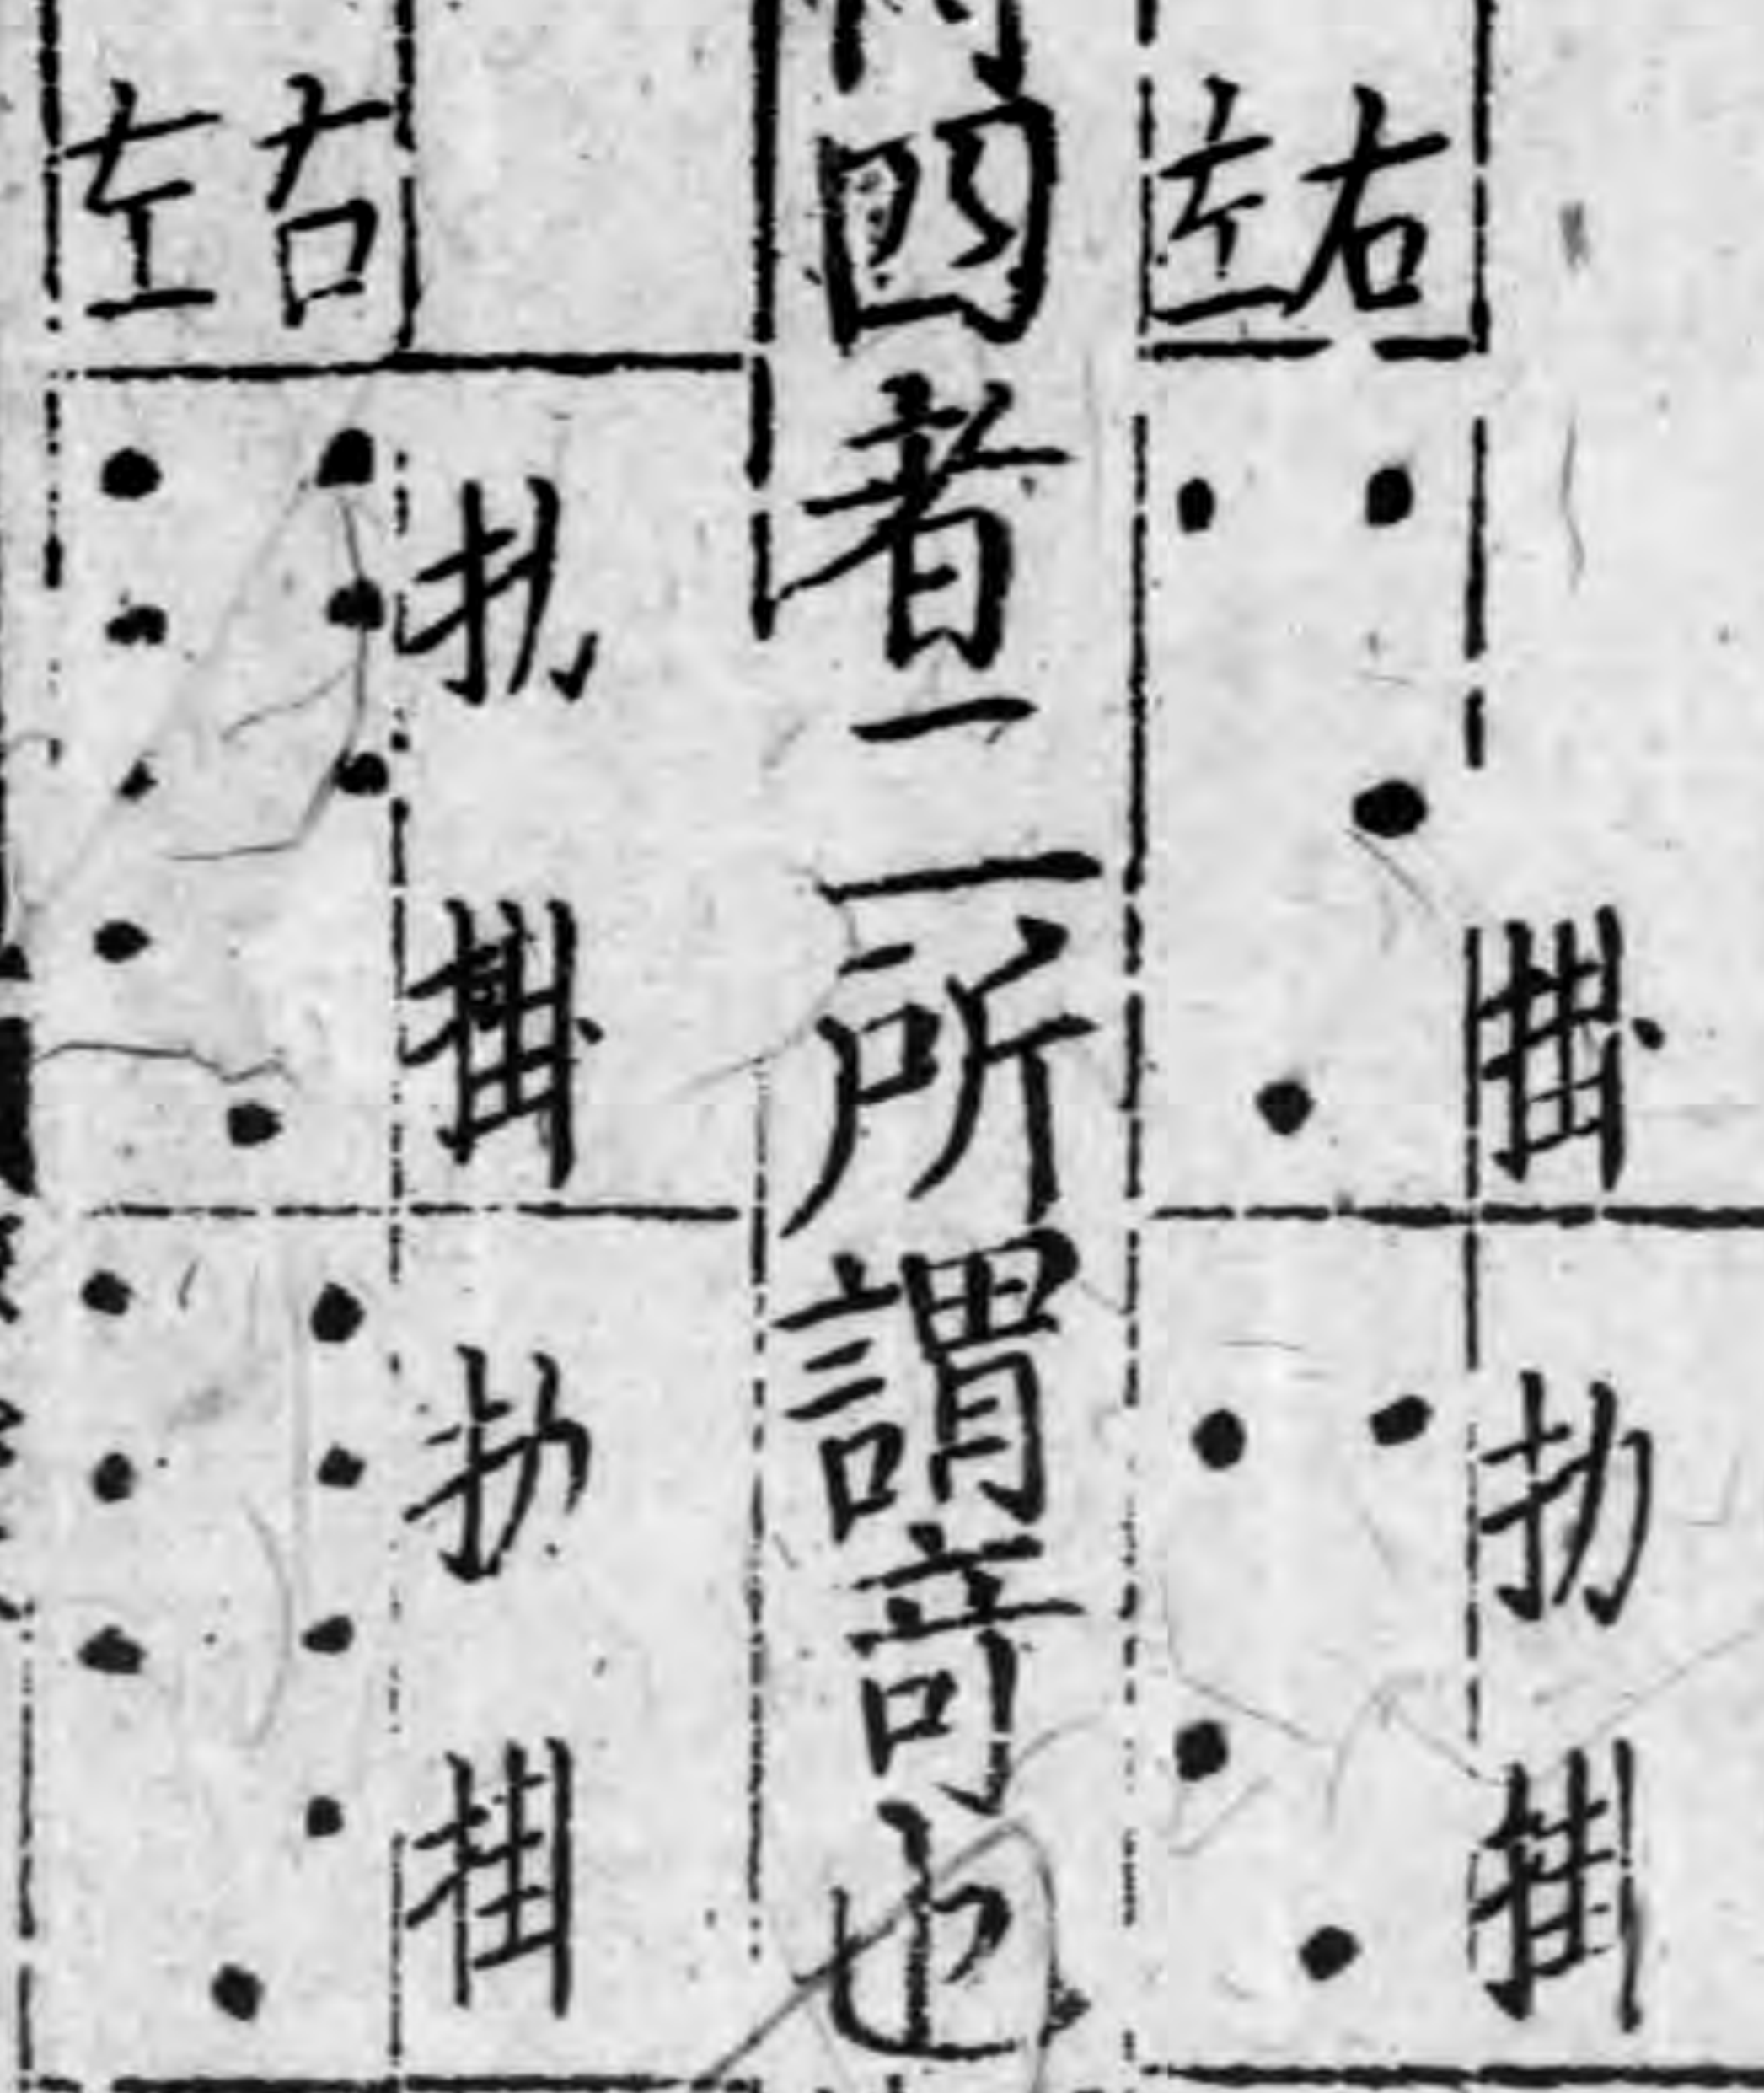 掛
扐
掛
右
左
四者一
一所謂奇也
扐
掛
扐
掛
右
左